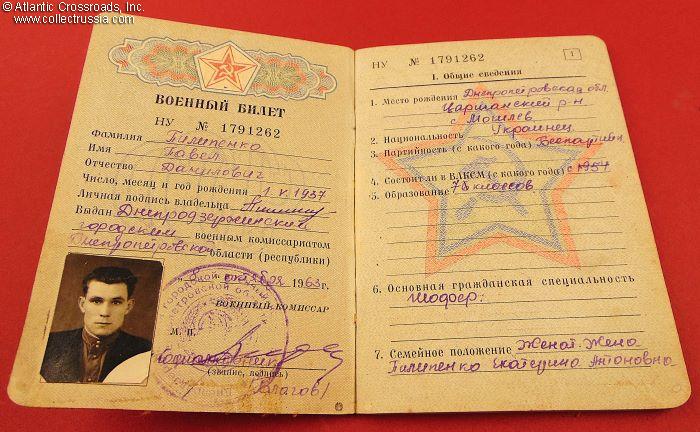 © Atlantic Crossroads, Inc.
www.collectrussia.com
ВОЕННЫЙ БИЛЕТ
НУ № 1791262
Фамилия Пилипенко
Имя Павел
Отчество Данилович
Число, месяц и год рождения 1.X.1937
Личная подпись владельца
Выдан Днепродзержинский
городским военным комиссариатом
Днепропетровской области (республики)
1963 г.
ВОЕННЫЙ КОМИССАР
М. П.
(звание, подпись)
(Благов)
НУ № 1791262
1
I. Общие сведения
1. Место рождения Днепропетровская обл.
Царичанский р-н
с. Могилев
2. Национальность Украинец
3. Партийность (с какого года) Беспартийн
4. Состоит ли в ВЛКСМ (с какого года) с 1957
5. Образование 7 классов
6. Основная гражданская специальность
Шофер.
7. Семейное положение Женат. Жена
Пилипенко Екатерина Антоновна